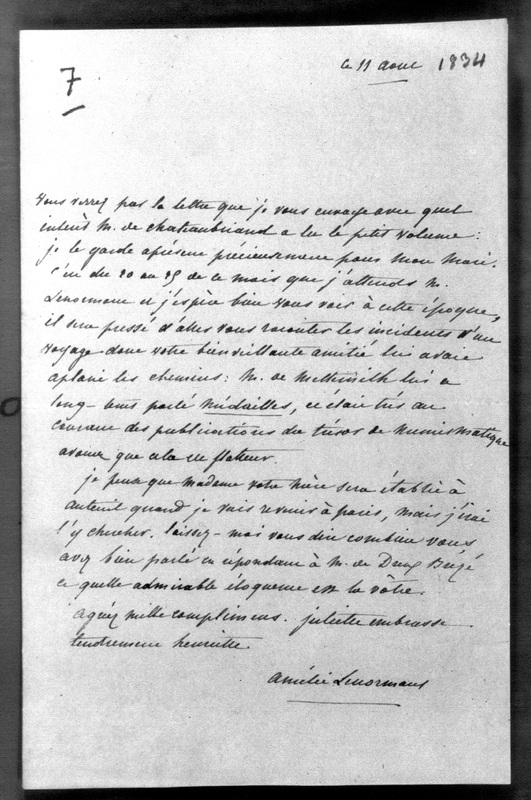 7
le 11 aout 1834
Vous verrez par la lettre que je vous envoye avec quel
intérêt M. de chateaubriand a lu le petit volume :
je le garde à présent précieusement pour mon mari.
c'est du 20 au 25 de ce mois que j'attends M.
Lenormant et j'espère bien vous voir à cette époque,
il sera pressé d'aller vous raconter les incidents d'un
voyage dont votre bienveillante amitié lui avait
aplani les chemins : M. de Metternich lui a
long-tems parlé médailles, et était très au
courant des publications du trésor de Numismatique
avouez que cela est flatteur.
je pense que madame votre mère sera établie à
auteuil quand je vais revenir à paris, mais j'irai
l'y chercher. laissez-moi vous dire combien vous
avez bien parlé en répondant à M. de Dreux Brézé
et quelle admirable éloquence est la vôtre.
agréez mille complimens. juliette embrasse
tendrement henriette.
amélie Lenormant